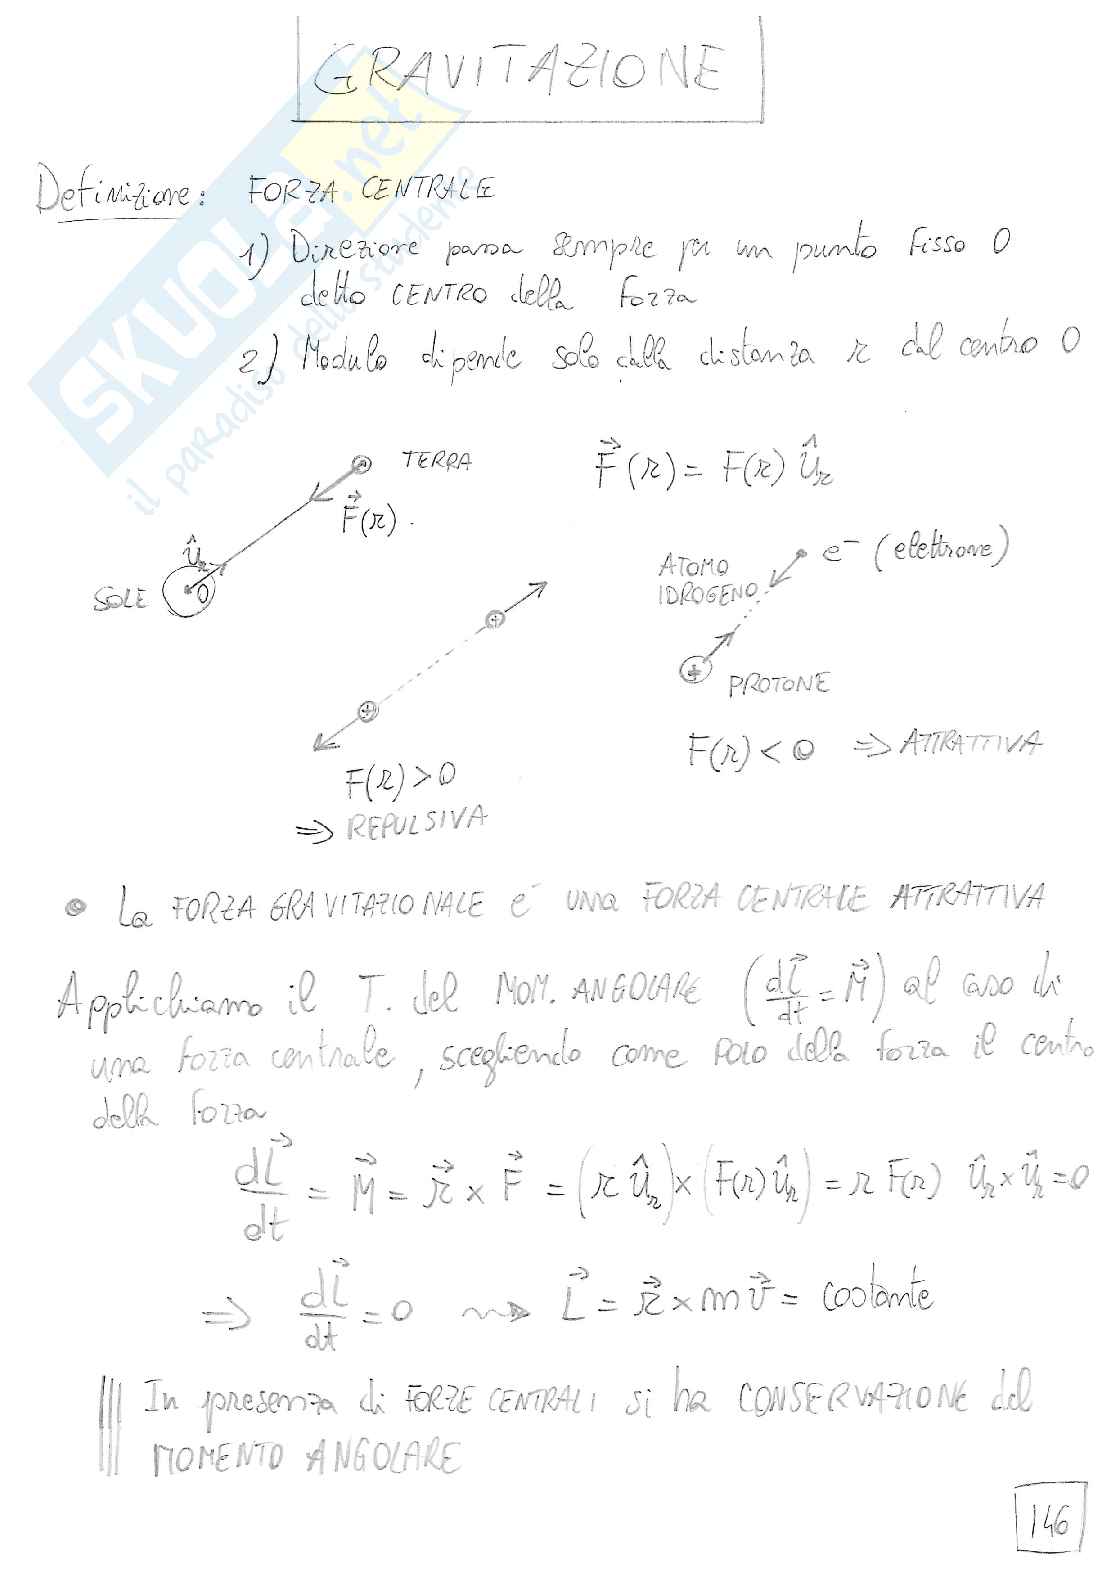 GRAVITAZIONE
SKUOLA.net
il paradiso dello studente
Definizione: FORZA CENTRALE
1) Direzione passa sempre per un punto fisso O
detto CENTRO della forza
2) Modulo dipende solo dalla distanza r dal centro O
TERRA
F⃗(r) = F(r) û_r
F⃗(r).
û_r
SOLE
O
ATOMO
IDROGENO
e⁻ (elettrone)
+
+
+
PROTONE
F(r) < 0 => ATTRATTIVA
F(r) > 0
=> REPULSIVA
• La FORZA GRAVITAZIONALE è una FORZA CENTRALE ATTRATTIVA
Applichiamo il T. del MOM. ANGOLARE (dL⃗/dt = M⃗) al caso di
una forza centrale, scegliendo come POLO della forza il centro
della forza
dL⃗/dt = M⃗ = r⃗ × F⃗ = (r û_r) × (F(r) û_r) = r F(r) û_r × û_r = 0
=> dL⃗/dt = 0 ⇝ L⃗ = r⃗ × m v⃗ = costante
In presenza di FORZE CENTRALI si ha CONSERVAZIONE del
MOMENTO ANGOLARE
146